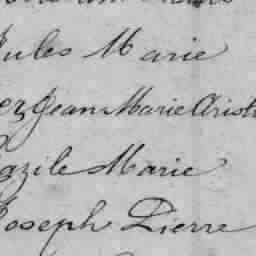 Jules Marie
ez Jean Marie Arist
azile Marie
Joseph Pierre